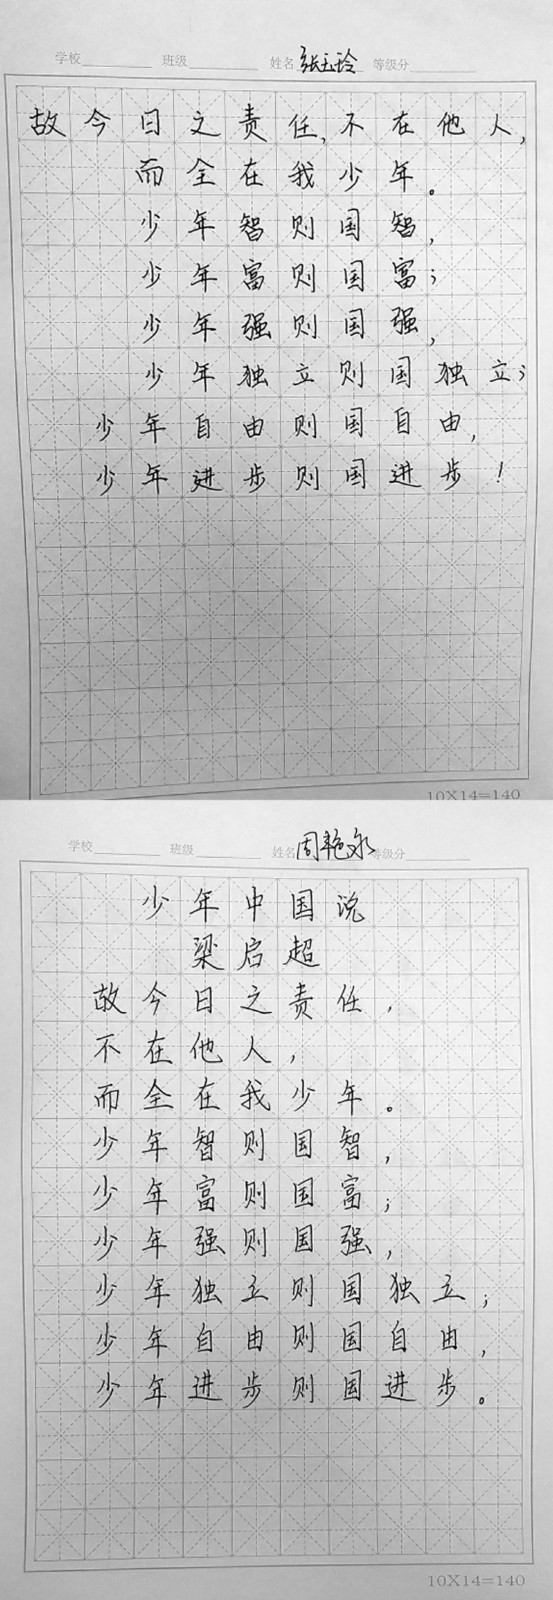 学校 班级 姓名 张玉玲 等级分
故今日之责任,不在他人,
而全在我少年。
少年智则国智,
少年富则国富;
少年强则国强,
少年独立则国独立;
少年自由则国自由,
少年进步则国进步!
10X14=140
学校 班级 姓名 周艳泉 等级分
少年中国说
梁启超
故今日之责任,
不在他人,
而全在我少年。
少年智则国智,
少年富则国富;
少年强则国强,
少年独立则国独立;
少年自由则国自由,
少年进步则国进步。
10X14=140